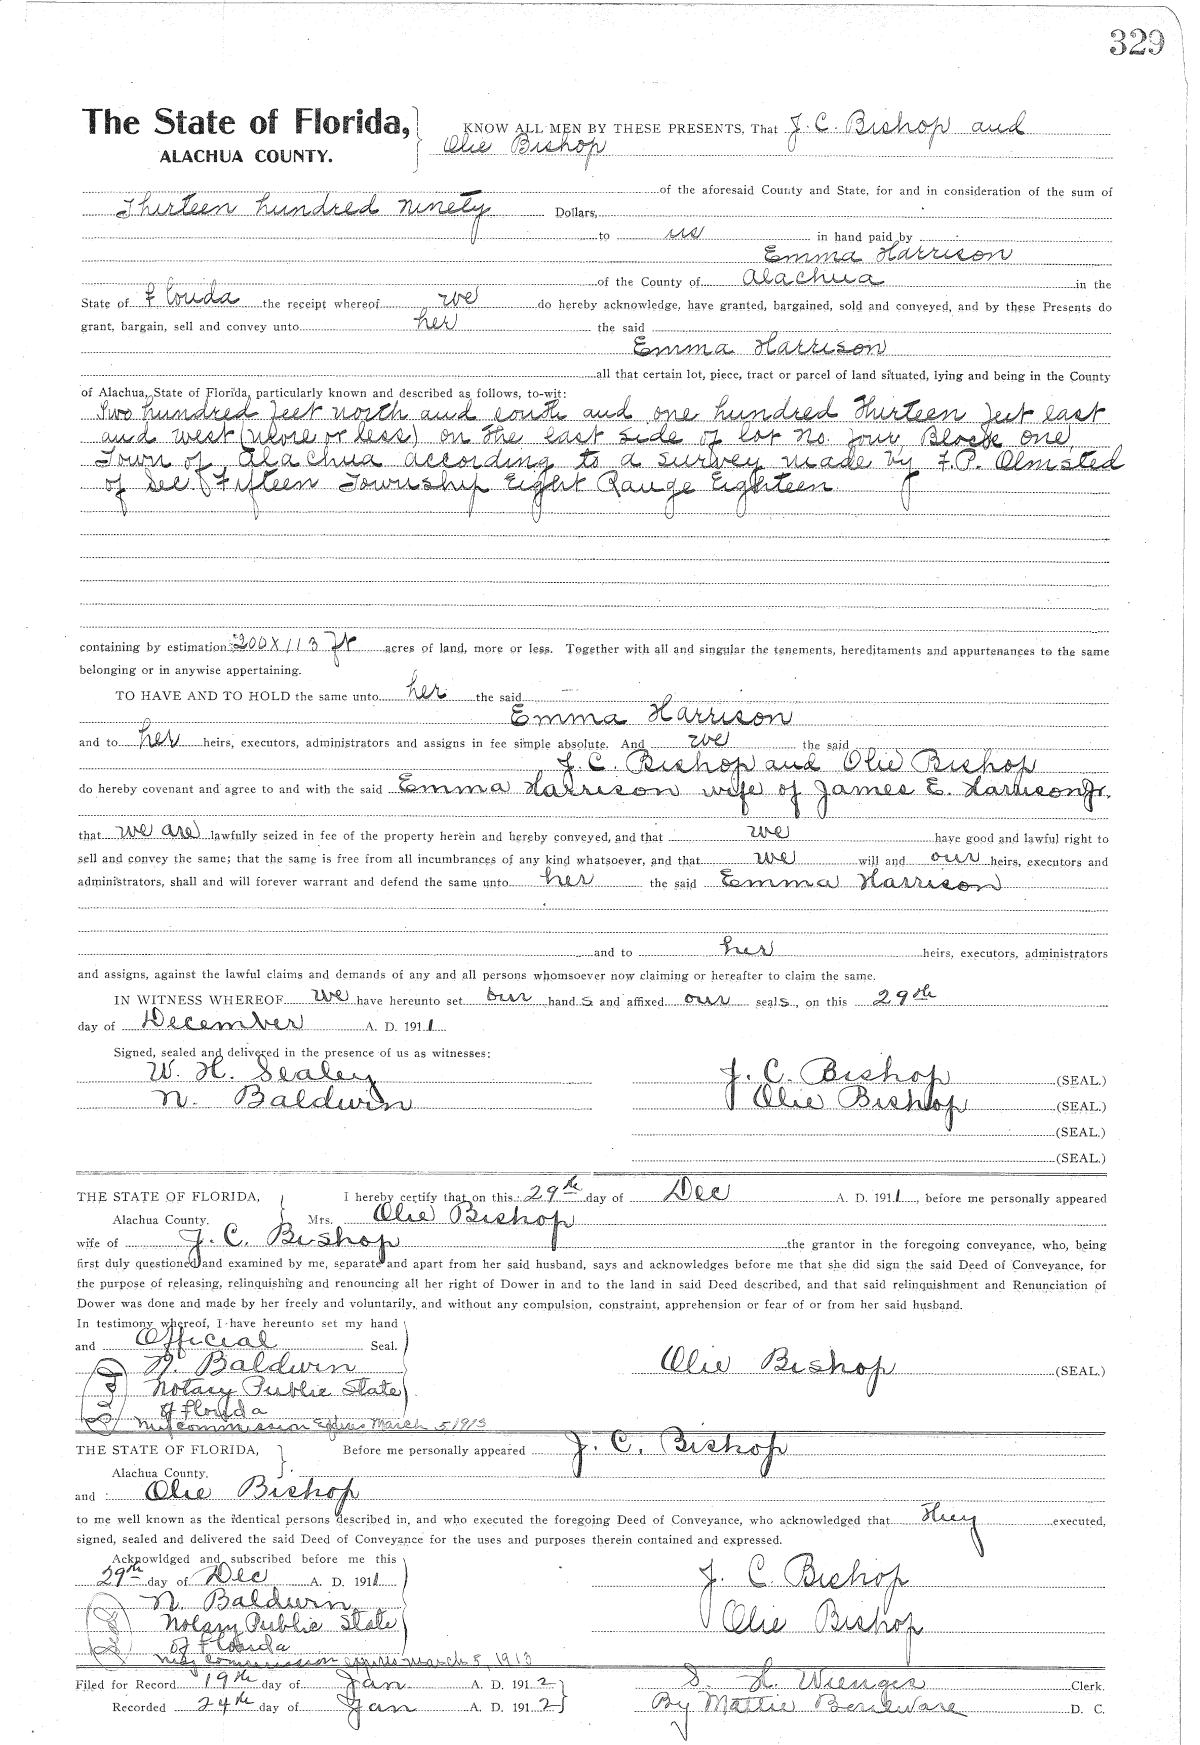 329
The State of Florida,
ALACHUA COUNTY.
KNOW ALL MEN BY THESE PRESENTS, That J. C. Bishop and
Olie Bishop
of the aforesaid County and State, for and in consideration of the sum of
Thirteen hundred ninety Dollars,
to us in hand paid by
Emma Harrison
of the County of Alachua in the
State of Florida the receipt whereof we do hereby acknowledge, have granted, bargained, sold and conveyed, and by these Presents do
grant, bargain, sell and convey unto her the said
Emma Harrison
all that certain lot, piece, tract or parcel of land situated, lying and being in the County
of Alachua, State of Florida, particularly known and described as follows, to-wit:
Two hundred feet north and south and one hundred thirteen feet east
and west (more or less) on the east side of lot No. four Block one,
Town of Alachua according to a survey made by F. P. Olmsted
of Sec. Fifteen Township Eight Range Eighteen
containing by estimation 200 X 113 ft acres of land, more or less. Together with all and singular the tenements, hereditaments and appurtenances to the same
belonging or in anywise appertaining.
TO HAVE AND TO HOLD the same unto her the said
Emma Harrison
and to her heirs, executors, administrators and assigns in fee simple absolute. And we the said
J. C. Bishop and Olie Bishop
do hereby covenant and agree to and with the said Emma Harrison wife of James E. Harrison Jr.
that we are lawfully seized in fee of the property herein and hereby conveyed, and that we have good and lawful right to
sell and convey the same; that the same is free from all incumbrances of any kind whatsoever, and that we will and our heirs, executors and
administrators, shall and will forever warrant and defend the same unto her the said Emma Harrison
and to her heirs, executors, administrators
and assigns, against the lawful claims and demands of any and all persons whomsoever now claiming or hereafter to claim the same.
IN WITNESS WHEREOF we have hereunto set our hands and affixed our seals, on this 29th
day of December A. D. 1911.
Signed, sealed and delivered in the presence of us as witnesses:
W. H. Sealey
N. Baldwin
J. C. Bishop (SEAL.)
Olie Bishop (SEAL.)
(SEAL.)
(SEAL.)
THE STATE OF FLORIDA, I hereby certify that on this 29th day of Dec A. D. 1911, before me personally appeared
Alachua County. Mrs. Olie Bishop
wife of J. C. Bishop the grantor in the foregoing conveyance, who, being
first duly questioned and examined by me, separate and apart from her said husband, says and acknowledges before me that she did sign the said Deed of Conveyance, for
the purpose of releasing, relinquishing and renouncing all her right of Dower in and to the land in said Deed described, and that said relinquishment and Renunciation of
Dower was done and made by her freely and voluntarily, and without any compulsion, constraint, apprehension or fear of or from her said husband.
In testimony whereof, I have hereunto set my hand
and Official Seal.
N. Baldwin
Notary Public State
of Florida
My commission Expires March 5 1913
Olie Bishop (SEAL.)
THE STATE OF FLORIDA, Before me personally appeared J. C. Bishop
Alachua County.
and Olie Bishop
to me well known as the identical persons described in, and who executed the foregoing Deed of Conveyance, who acknowledged that they executed,
signed, sealed and delivered the said Deed of Conveyance for the uses and purposes therein contained and expressed.
Acknowldged and subscribed before me this
29th day of Dec A. D. 1911
N. Baldwin
Notary Public State
of Florida
My commission expires march 5, 1913
J. C. Bishop
Olie Bishop
Filed for Record 19th day of Jan A. D. 1912
Recorded 24th day of Jan A. D. 1912
S. H. Wienges Clerk.
By Mattie D. C.